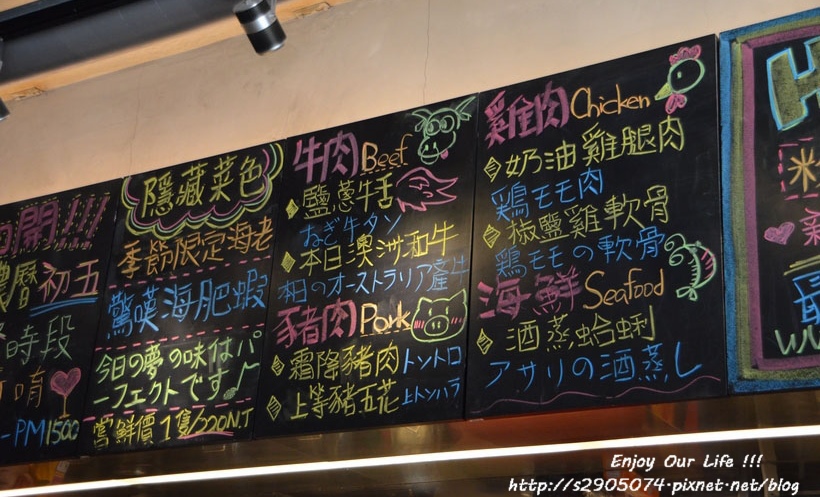 開!!!
農曆初五
時段
唷
-PM1500
隱藏菜色
季節限定海老
驚嘆海肥蝦
今日の夢の味はパ
ーフェクトです♪
嘗鮮價1隻/220N.T
牛肉Beef
鹽蔥牛舌
ねぎ牛タン
本日澳洲和牛
相日のオーストラリア產牛
豬肉Pork
霜降豬肉トントロ
上等豬五花上トンバラ
雞肉Chicken
奶油雞腿肉
鶏モモ肉
椒鹽雞軟骨
鶏モモの軟骨
海鮮Seafood
酒蒸蛤蜊
アサリの酒蒸し
H
Enjoy Our Life !!!
http://s2905074.pixnet.net/blog